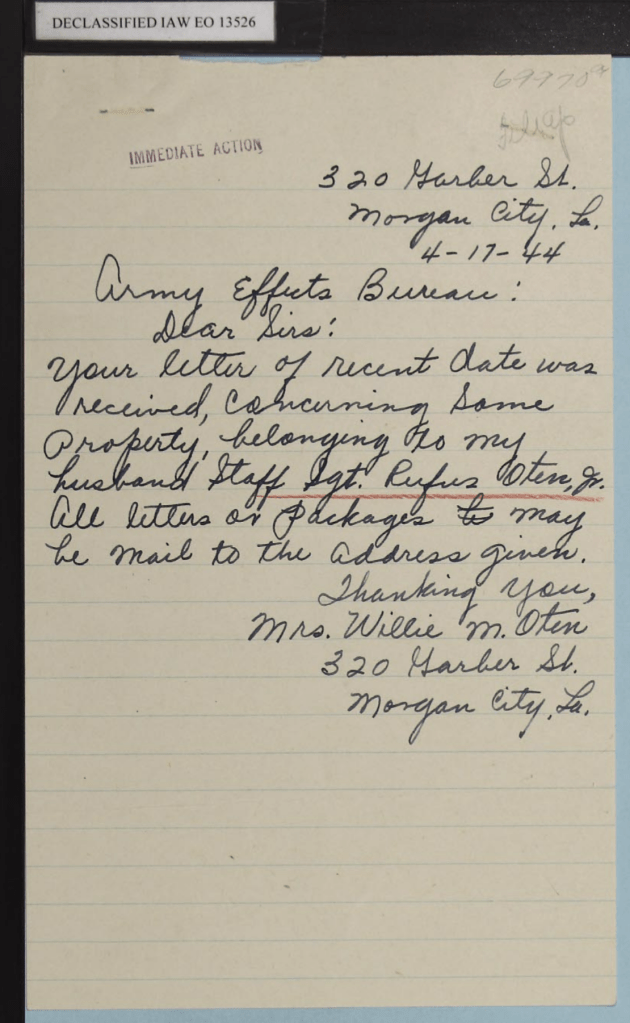 DECLASSIFIED IAW EO 13526
IMMEDIATE ACTION
320 Garber St.
Morgan City, La.
4-17-44
Army Effects Bureau:
Dear Sirs:
Your letter of recent date was
received, Concerning Some
Property, belonging to my
husband Staff Sgt. Rufus Oten, Jr.
All letters or Packages to may
be mail to the address given.
Thanking you,
Mrs. Willie M. Oten
320 Garber St.
Morgan City, La.